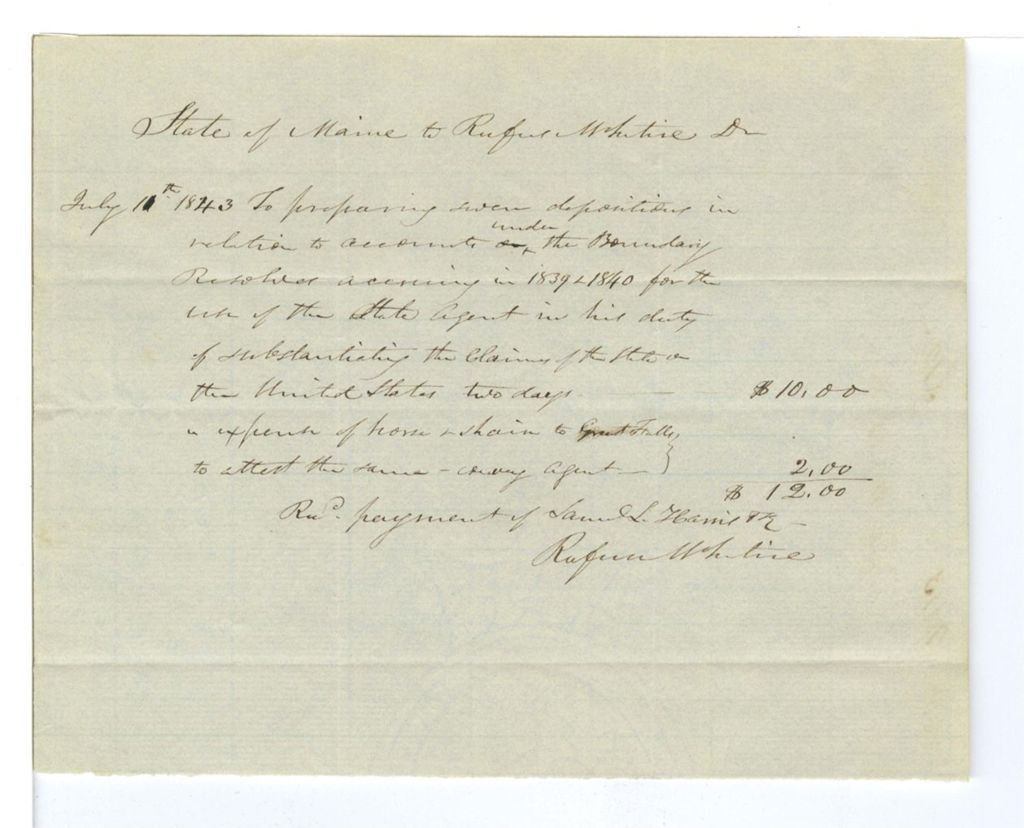 State of Maine to Rufus McIntire Dr
July 11th 1843 To preparing seven depositions in
under
relation to accounts on the Boundary
Resolves accruing in 1839 & 1840 for the
use of the State Agent in his duty
of substantiating the Claims of the State on
the United States two days $10.00
" expense of horse & chaise to Great Falls
to attest the same - convey Agent 2.00
$ 12.00
Recd. payment of Saml L. Harris
Rufus McIntire